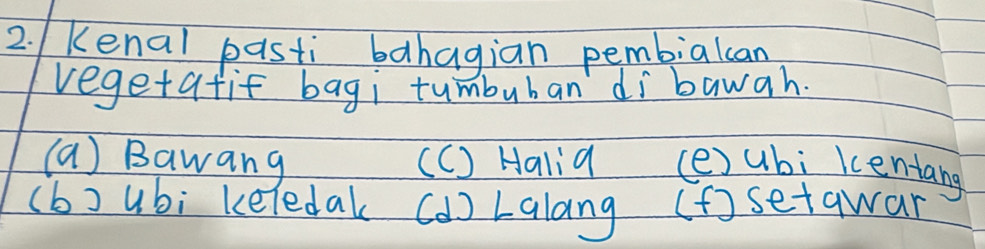 2. Kenal pasti bahagian pembiakan
vegetatif bagi tumbuhan di bawah.
(a) Bawang (c) Halia (e) Ubi kentang
(b) Ubi keledak (d) Lalang (f) setawar